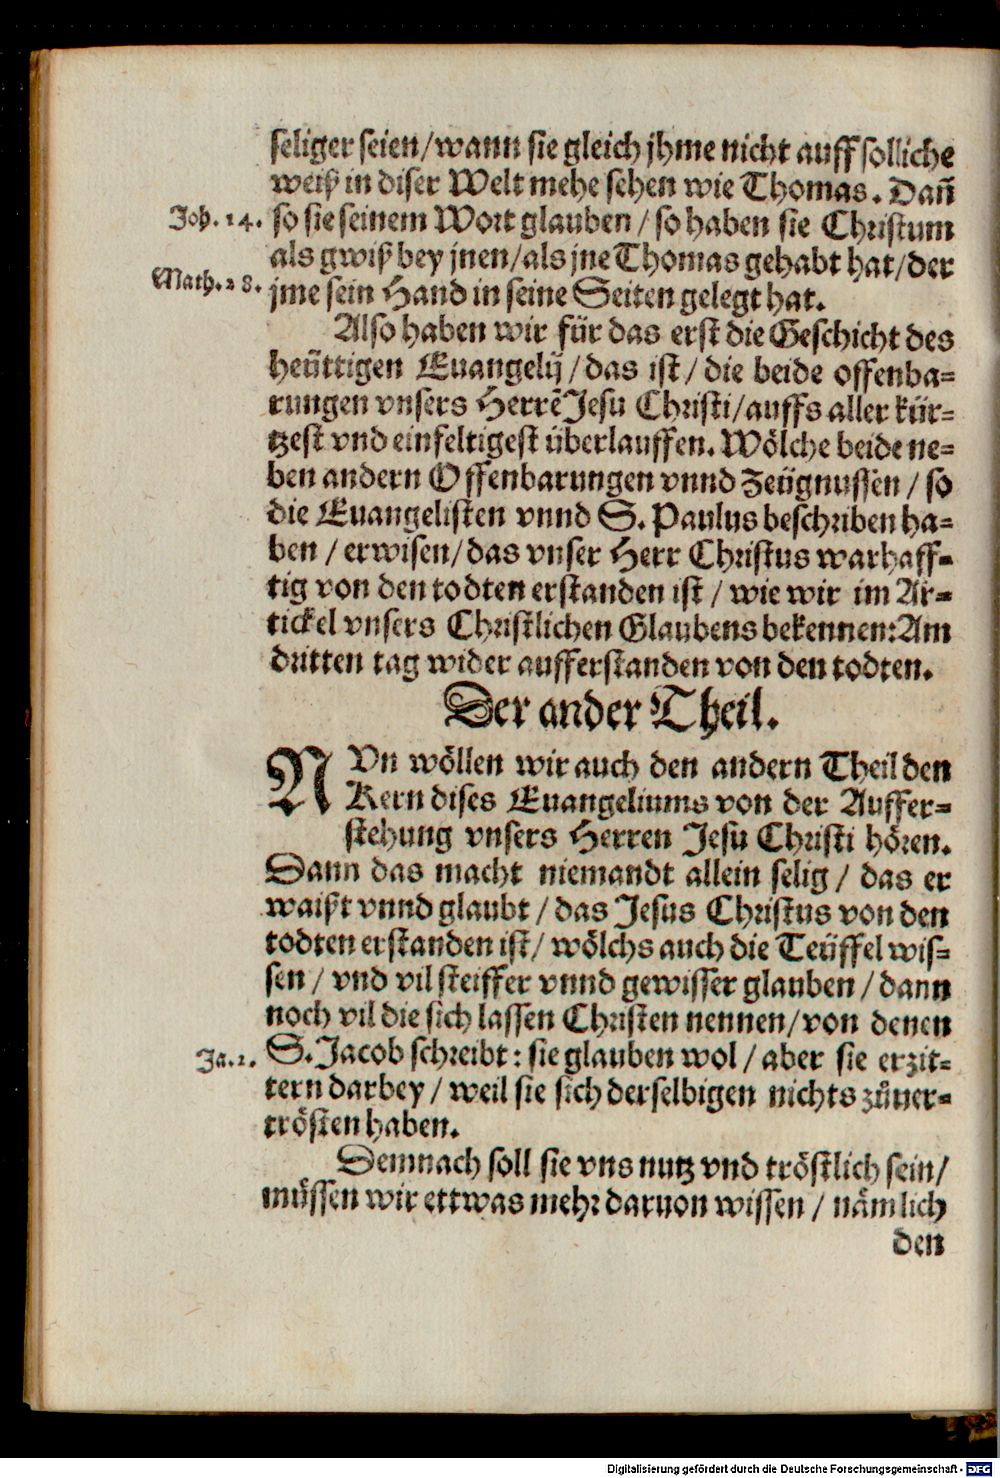 seliger seien/wann sie gleich jhme nicht auff solliche
weiß in diser Welt mehe sehen wie Thomas. Dañ
Joh. 14. so sie seinem Wort glauben/ so haben sie Christum
als gwiß bey jnen/als jne Thomas gehabt hat/der
Math. 28. jme sein Hand in seine Seiten gelegt hat.
Also haben wir für das erst die Geschicht des
heüttigen Euangelij/das ist/ die beide offenba=
rungen vnsers HerrẽJesu Christi/auffs aller kür=
tzest vnd einfeltigest überlauffen. Wölche beide ne=
ben andern Offenbarungen vnnd Zeügnussen/ so
die Euangelisten vnnd S. Paulus beschriben ha=
ben/ erwisen/das vnser Herr Christus warhaff=
tig von den todten erstanden ist/ wie wir im Ar=
tickel vnsers Christlichen Glaubens bekennen:Am
dritten tag wider aufferstanden von den todten.
Der ander Theil.
NVn wöllen wir auch den andern Theil den
Kern dises Euangeliums von der Auffer=
stehung vnsers Herren Jesu Christi hören.
Dann das macht niemandt allein selig/ das er
waißt vnnd glaubt/das Jesus Christus von den
todten erstanden ist/ wölchs auch die Teüffel wis=
sen/ vnd vil steiffer vnnd gewisser glauben/dann
noch vil die sich lassen Christen nennen/von denen
Ja. 2. S. Jacob schreibt: sie glauben wol/aber sie erzit=
tern darbey/ weil sie sich derselbigen nichts zůuer=
trösten haben.
Demnach soll sie vns nutz vnd tröstlich sein/
müssen wir ettwas mehr daruon wissen/ nämlich
den
Digitalisierung gefördert durch die Deutsche Forschungsgemeinschaft - DFG